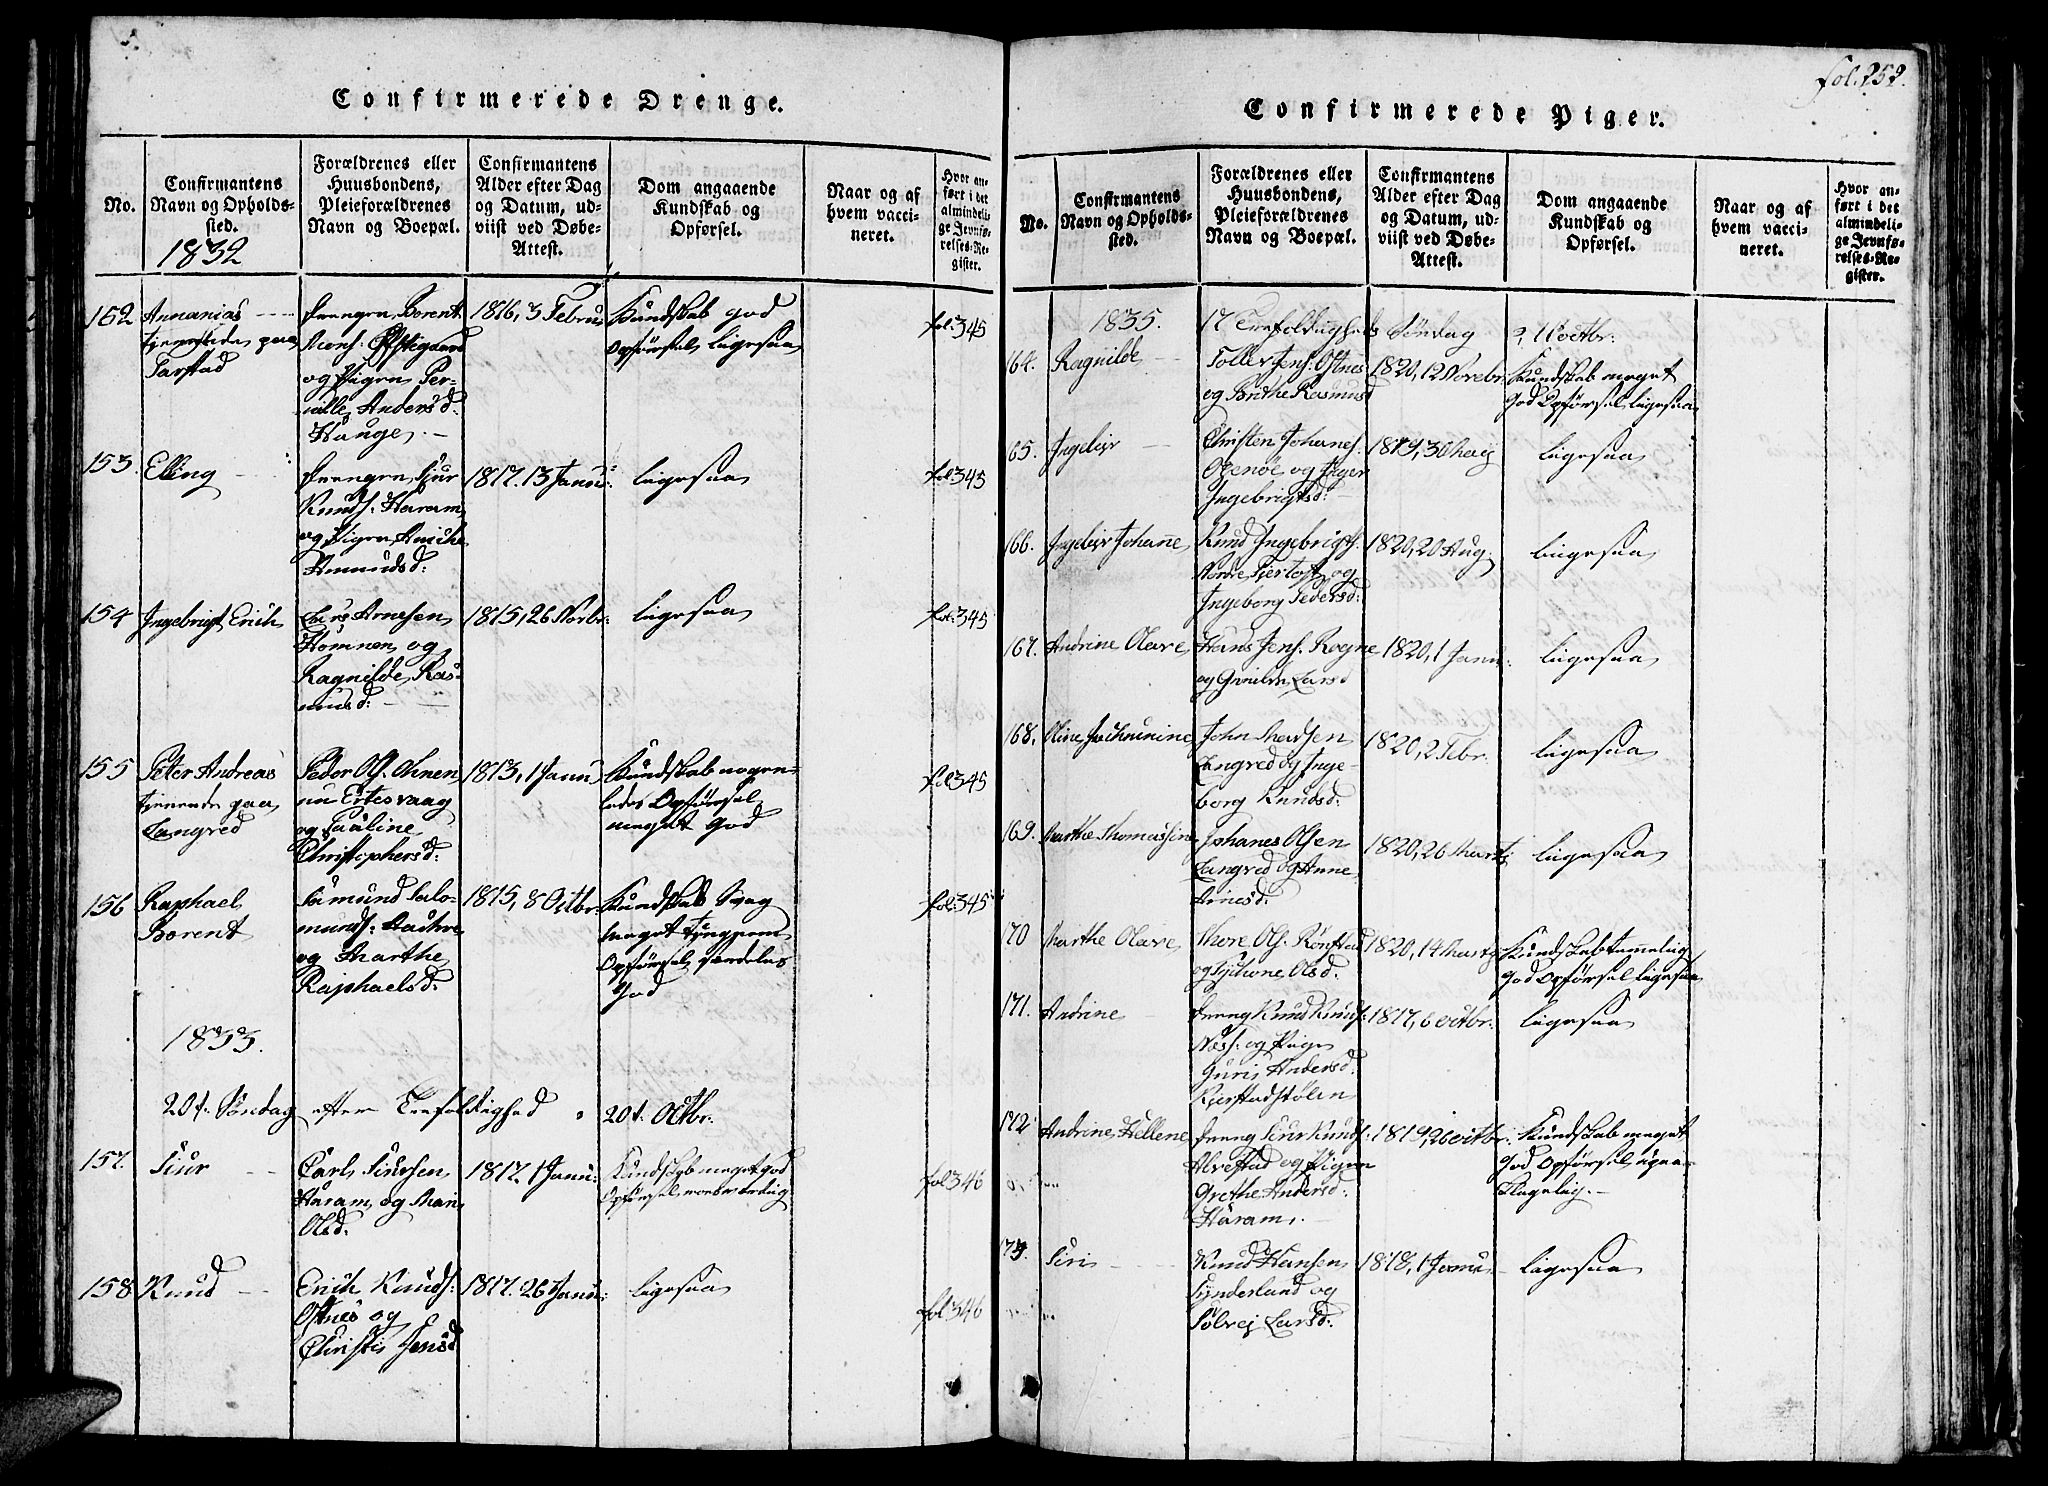 Confirmerede Drenge.
No.
Confirmantens
Navn og Opholds-
sted.
1832
Forældrenes eller
Huusbondens,
Pleieforældrenes
Navn og Boepæl.
Confirmantens
Alder efter Dag
og Datum, ud-
viist ved Døbe-
Attest.
Dom angaaende
Kundskab og
Opførsel.
Naar og af
hvem vacci-
neret.
Hvor an-
ført i det
almindeli-
ge Jevnfø-
relses-Re-
gister.
152
Annanias
tjenende paa
Tarstad
Drengen Borent
Mons:
og Pigen Per-
nille Andersd:
Hauge.
1816, 3 Februr
Kundskab god
Opførsel ligesaa
fol:345
153.
Elling
Drengen Siur
Knuds: Haram
og Pigen
Amundsd:
1817. 13 Janu:
ligesaa
fol:345
154
Ingebrigt Erich
Lars Arnesen
og
Ragnilde Ras-
musd:
1815, 26 Novbr:
ligesaa
fol:345
155
Peter Andreas
tjenende paa
Langred
Peder Ols:
nu Ertesvaag
og Pauline
Christophersd:
1813, 1 Janu
Kundskab nogen-
ledes Opførsel
meget God
fol:345
156
Raphael
Borent
Samund Salo-
munds:
og Marthe
Raphaelsd:
1815, 8 Octbr:
Kundskab Svag
meget tungnem
Opførsel særdeles
God
fol:345
1833.
20de Søndag efter Treefoldighed 20de Octbr:
157.
Siur
Carl Siursen
Haram og Mari
Olsd:
1817. 1 Janu:
Kundskab meget god
Opførsel roesværdig
fol:346
158
Knud
Erich Knuds:
Ostnes og
Christi Jensd
1817. 26 Janu:
ligesaa
fol:346
fol. 252.
Confirmerede Piger.
No.
Confirmantens
Navn og Opholds-
sted.
Forældrenes eller
Huusbondens,
Pleieforældrenes
Navn og Boepæl.
Confirmantens
Alder efter Dag
og Datum, ud-
viist ved Døbe-
Attest.
Dom angaaende
Kundskab og
Opførsel.
Naar og af
hvem vacci-
neret.
Hvor an-
ført i det
almindeli-
ge Jevnfø-
relses-Re-
gister.
1835. 17 Treefoldigheds Søndag octbr:
164.
Ragnilde
Toller Jens: Ostnes
og Berthe Rasmusd
1820, 12 Novebr:
Kundskab meget
God Opførsel ligesaa
65.
Ingeleiv
Christen Johanes:
og Inger
Ingebrigtsd:
1819, 30 Maij
ligesaa
166.
Ingeleiv Johanne
Knud Ingebrigts:
Nordre Fjertoft og
Ingeborg Pedersd:
1820, 20 Aug:
ligesaa
167.
Andrine Olave
Hans Jens: Rogne
og Gunild Larsd
1820, 1 Janu:
ligesaa
168.
Oline Jachumine
John Madsen
Langred og Inge-
borg Knudsd:
1820, 2 Febr:
ligesaa
169.
Marthe Thomassine
Johanes Olsen
Langred og Anne
Arnesd:
1820, 26 Martj
ligesaa
170
Marthe Olave
Thore Ols: Rønstad
og Olsd:
1820, 14 Martj
Kundskab temmelig
God Opførsel ligesaa
171.
Andrine
Dreng Knud Knuds:
Næss: og Pige
Guri Andersd:
Kjerstadstølen
1817, 6 octbr:
ligesaa
172.
Andrine Hellene
Dreng Siur Knuds:
Alvestad og Pigen
Grethe Andersd:
Haram.
1819, 26 octbr:
Kundskab meget
God Opførsel upaa-
klagelig.
173.
Siri
Knud Hansen
Synderland og
Sølvej Larsd:
1818, 1 Janu
ligesaa